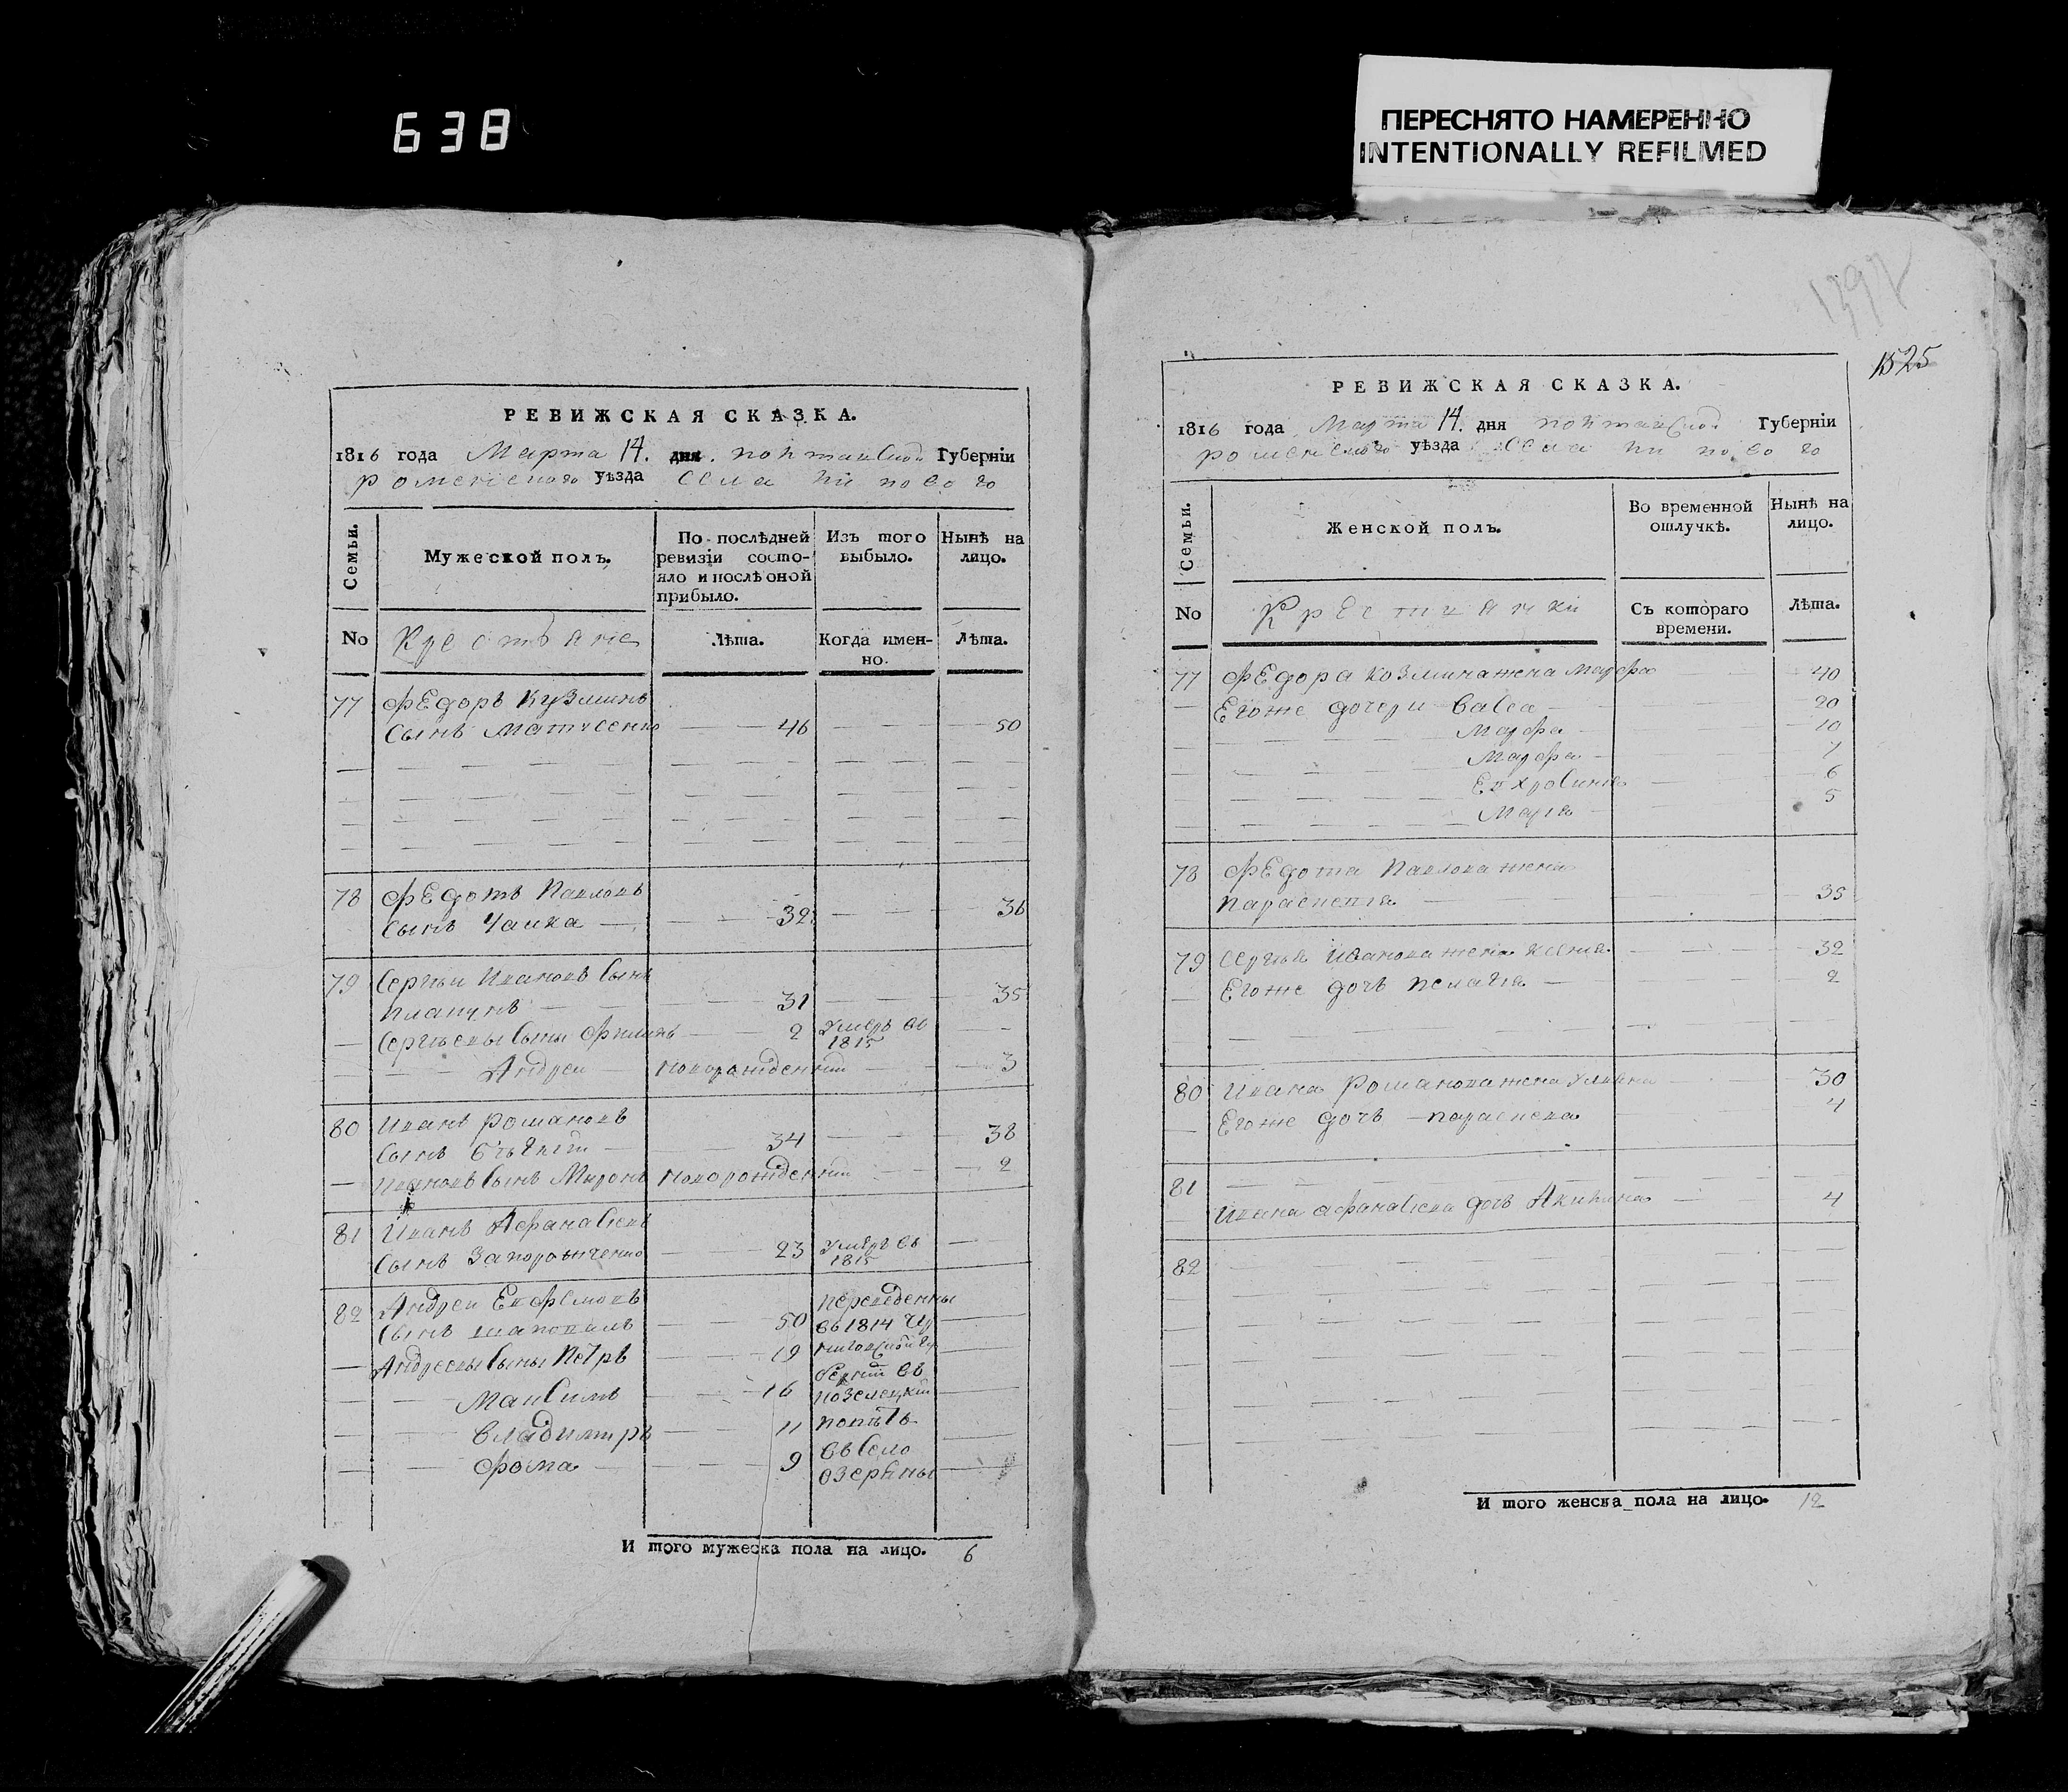 638
ПЕРЕСНЯТО НАМЕРЕННО
INTENTIONALLY REFILMED
РЕВИЖСКАЯ СКАЗКА.
1816 года Марта 14. дня. Полтавской Губерніи
роменского уѣзда Села
Семьи.
Мужеской полъ.
По послѣдней ревизіи состояло и послѣ оной прибыло.
Изъ того выбыло.
Нынѣ на лицо.
No
Крестьяне
Лѣта.
Когда именно.
Лѣта.
77 Федоръ Кузминъ
Сынъ Матвеенко 46 50
78 Федотъ Павловъ
Сынъ Чайка 32 36
79 Сергѣй Ивановъ Сынъ
31 35
Сергѣевы Сыны Филипъ 2 Умеръ въ
1815
Андрей новорожденній 3
80 Иванъ Романовъ
Сынъ 34 38
Ивановъ Сынъ Миронъ новорожденній 2
81 Иванъ Афанасіевъ
Сынъ 23 Умеръ въ
1815
82 Андрей Ефремовъ переведенны
Сынъ шаповалъ 50 въ 1814
Андреевы Сыны Петръ 19
Максимъ 16 въ
козелецкій
Владимиръ 11 повѣтъ
въ Село
Фома 9 озеряны
И того мужеска пола на лицо. 6
1397
1525
РЕВИЖСКАЯ СКАЗКА.
1816 года Марта 14. дня Полтавской Губерніи
роменского уѣзда Села
Семьи.
Женской полъ.
Во временной отлучкѣ.
Нынѣ на лицо.
No
Крестьянки
Съ котораго времени.
Лѣта.
77 Федора Козмина жена Марфа 40
Егоже дочери Васса 20
Марфа 10
Марфа 7
Евхросиня 6
Марія 5
78 Федота Павлова жена
Параскевія 35
79 Сергѣя Иванова жена Ксенія 32
Егоже дочь Пелагія 2
80 Ивана Романова жена Уляна 30
Егоже дочь Параскева 4
81
Ивана Афанасіева дочь Акилина 4
82
И того женска пола на лицо. 12